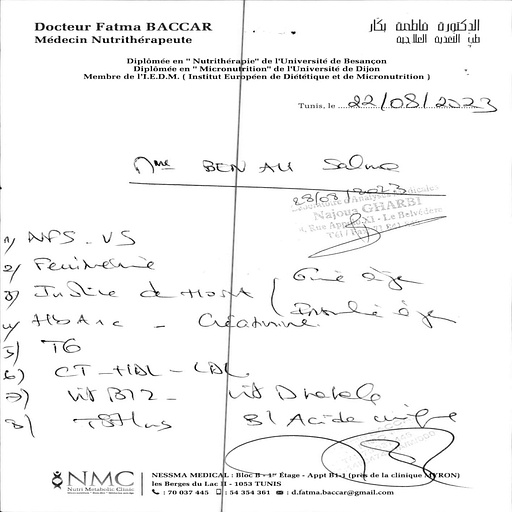 Docteur Fatma BACCAR
Médecin Nutrithérapeute
الدكتورة فاطمة بكار
طب التغذية العلاجية
Diplômée en " Nutrithérapie" de l'Université de Besançon
Diplômée en "Micronutrition" de l'Université de Dijon
Membre de l'I.E.D.M. ( Institut Européen de Diététique et de Micronutrition )
Tunis, le 22/08/2023
Mme BEN ALI Salma
28/08/2023
d'Analyses Médicales
Najoua GHARBI
Rue - Le Belvédère
1/ NFS - VS
2/ Ferritinémie
3/ Indice de HOMA ( Glycé à jeun
Insuline à jeun
4/ HbA1c - Créatinine
5/ TG
6) CT - HDL - LDL
7) Vit B12 - Vit D totale
8/ TSHus 9/ Acide urique
NMC
Nutri Metabolic Clinic
NESSMA MEDICAL : Bloc B - 1er Étage - Appt B1-1 (près de la clinique MYRON)
les Berges du Lac II - 1053 TUNIS
: 70 037 445 : 54 354 361 : d.fatma.baccar@gmail.com